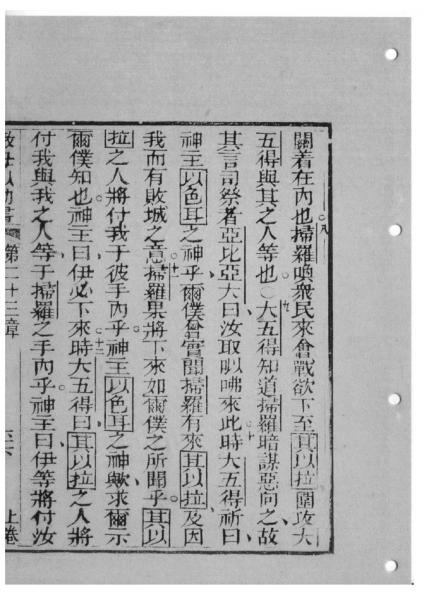 關着在內也八掃羅喚衆民來會戰欲下至耳以拉圍攻大
五得與其之人等也九大五得知道掃羅暗謀惡向之故
其言司祭者亞比亞大曰汝取㕽㗘來此時十大五得祈曰
神主以色耳之神乎爾僕曾實聞掃羅有來耳以拉及因
我而有敗城之意十一掃羅果將下來如爾僕之所聞乎耳以
拉之人將付我于彼手內乎神主以色耳之神歟求爾示
爾僕知也神主曰伊必下來十二時大五得曰耳以拉之人將
付我與我之人等于掃羅之手內乎神主曰伊等將付汝
第二十三章 上卷